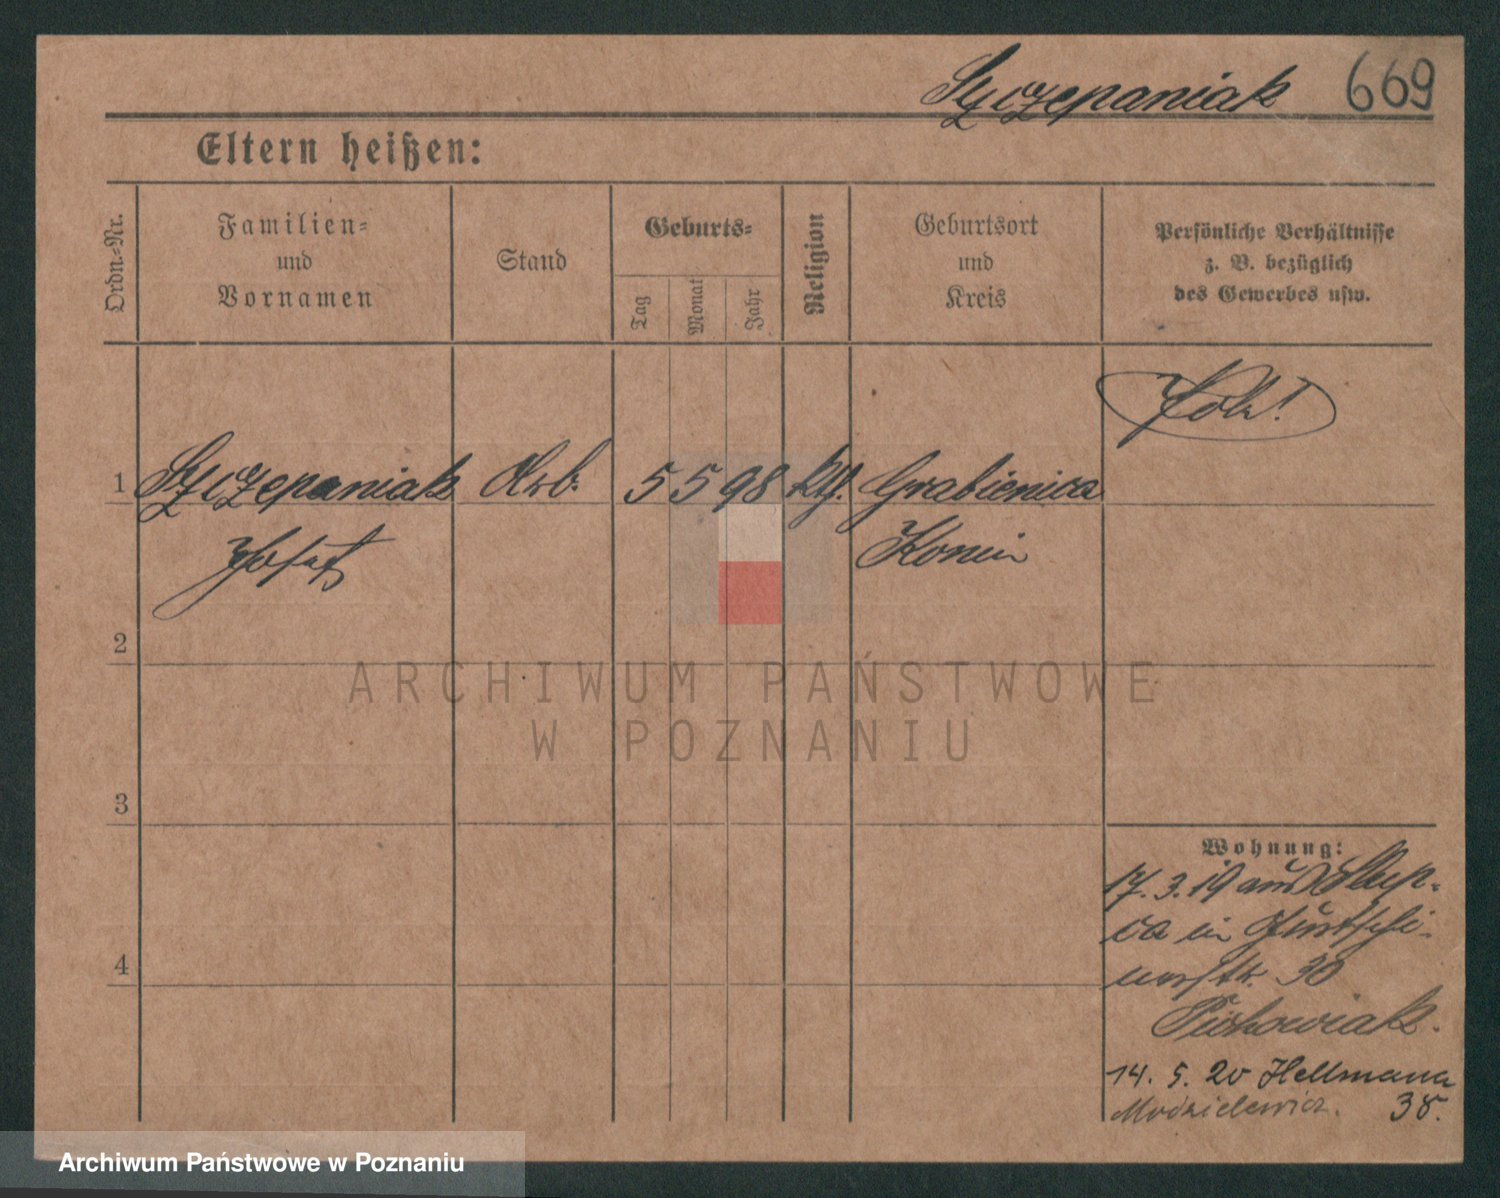 Szczepaniak 669
Eltern heißen:
Ordn.=Nr.
Familien=
und
Vornamen
Stand
Geburts=
Tag
Monat
Jahr
Religion
Geburtsort
und
Kreis
Persönliche Verhältnisse
z. B. bezüglich
des Gewerbes usw.
Pole!
1 Szczepaniak Arb. 5 5 98 kth. Grabienica
Josef Konin
2
3
4
Wohnung:
17. 3. 19 aus Slup-
ca in
30
14. 5. 20 Hellmana
38.
ARCHIWUM PAŃSTWOWE
W POZNANIU
Archiwum Państwowe w Poznaniu